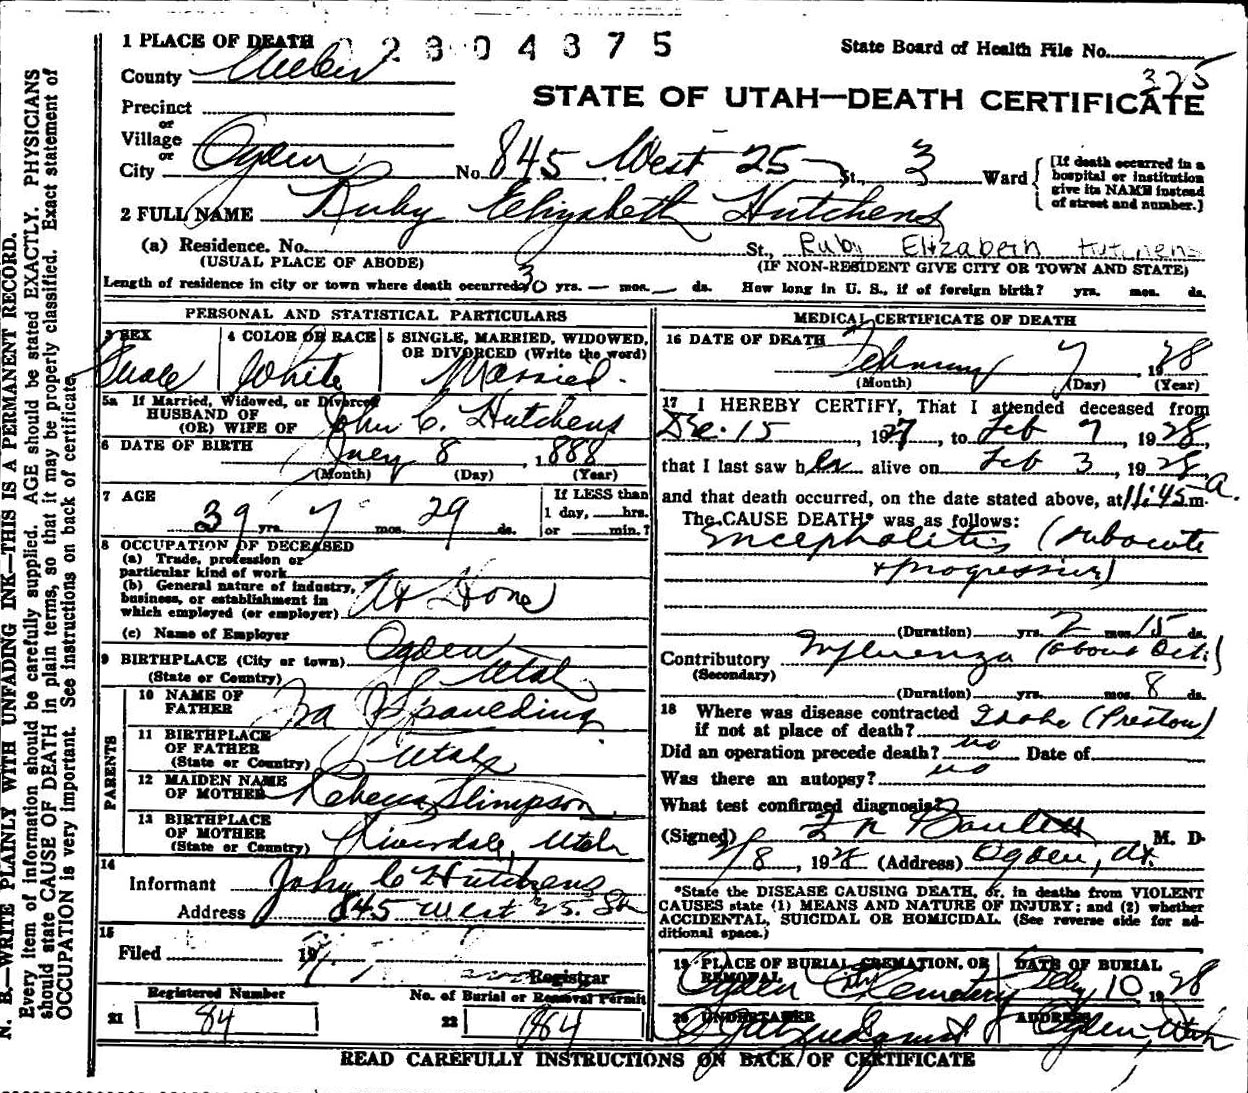 1 PLACE OF DEATH 02804375 State Board of Health File No.
County Weber 325
STATE OF UTAH—DEATH CERTIFICATE
Precinct
or
Village
or
City Ogden No. 845 West 25 St., 3 Ward [If death occurred in a hospital or institution give its NAME instead of street and number.]
2 FULL NAME Ruby Elizabeth Hutchens
(a) Residence. No. St., Ruby Elizabeth Hutchens
(USUAL PLACE OF ABODE) (IF NON-RESIDENT GIVE CITY OR TOWN AND STATE)
Length of residence in city or town where death occurred 30 yrs. — mos. — ds. How long in U. S., if of foreign birth? yrs. mos. ds.
PERSONAL AND STATISTICAL PARTICULARS
3 SEX 4 COLOR OR RACE 5 SINGLE, MARRIED, WIDOWED,
OR DIVORCED (Write the word)
White Married.
5a If Married, Widowed, or Divorced
HUSBAND OF
(OR) WIFE OF John C. Hutchens
6 DATE OF BIRTH 8, 1888
(Month) (Day) (Year)
7 AGE If LESS than
1 day, hrs.
39 yrs. 7 mos. 29 ds. or min.?
8 OCCUPATION OF DECEASED
(a) Trade, profession or
particular kind of work
(b) General nature of industry,
business, or establishment in
which employed (or employer) At Home
(c) Name of Employer
9 BIRTHPLACE (City or town) Ogden
(State or Country) Utah
PARENTS
10 NAME OF
FATHER Ira Spaulding
11 BIRTHPLACE
OF FATHER
(State or Country) Utah
12 MAIDEN NAME
OF MOTHER Rebecca Stimpson
13 BIRTHPLACE
OF MOTHER
(State or Country) Riverdale, Utah
14
Informant John C Hutchens
Address 845 West 25. St
15
Filed 19
Registrar
Registered Number No. of Burial or Removal Permit
21 84 22 184
MEDICAL CERTIFICATE OF DEATH
16 DATE OF DEATH February 7 1928
(Month) (Day) (Year)
17 I HEREBY CERTIFY, That I attended deceased from
Dec. 15, 1927, to Feb 7, 1928,
that I last saw her alive on Feb 3, 1928
and that death occurred, on the date stated above, at 11:45 a.m.
The CAUSE DEATH* was as follows:
Encephalitis (subacute
+ progressive)
(Duration) yrs. 2 mos. 15 ds.
Contributory Influenza (about Oct.)
(Secondary)
(Duration) yrs. mos. 8 ds.
18 Where was disease contracted
if not at place of death? Idaho (Preston)
Did an operation precede death? no Date of
Was there an autopsy? no
What test confirmed diagnosis?
(Signed) M. D.
2/8, 1928 (Address) Ogden, Ut.
*State the DISEASE CAUSING DEATH, or, in deaths from VIOLENT
CAUSES state (1) MEANS AND NATURE OF INJURY; and (2) whether
ACCIDENTAL, SUICIDAL OR HOMICIDAL. (See reverse side for ad-
ditional space.)
19 PLACE OF BURIAL, CREMATION, OR REMOVAL DATE OF BURIAL
Ogden City Cemetery Feby 10 1928
20 UNDERTAKER ADDRESS
Ogden, Utah
READ CAREFULLY INSTRUCTIONS ON BACK OF CERTIFICATE
N. B.—WRITE PLAINLY WITH UNFADING INK—THIS IS A PERMANENT RECORD.
Every item of information should be carefully supplied. AGE should be stated EXACTLY. PHYSICIANS
should state CAUSE OF DEATH in plain terms, so that it may be properly classified. Exact statement of
OCCUPATION is very important. See instructions on back of certificate.